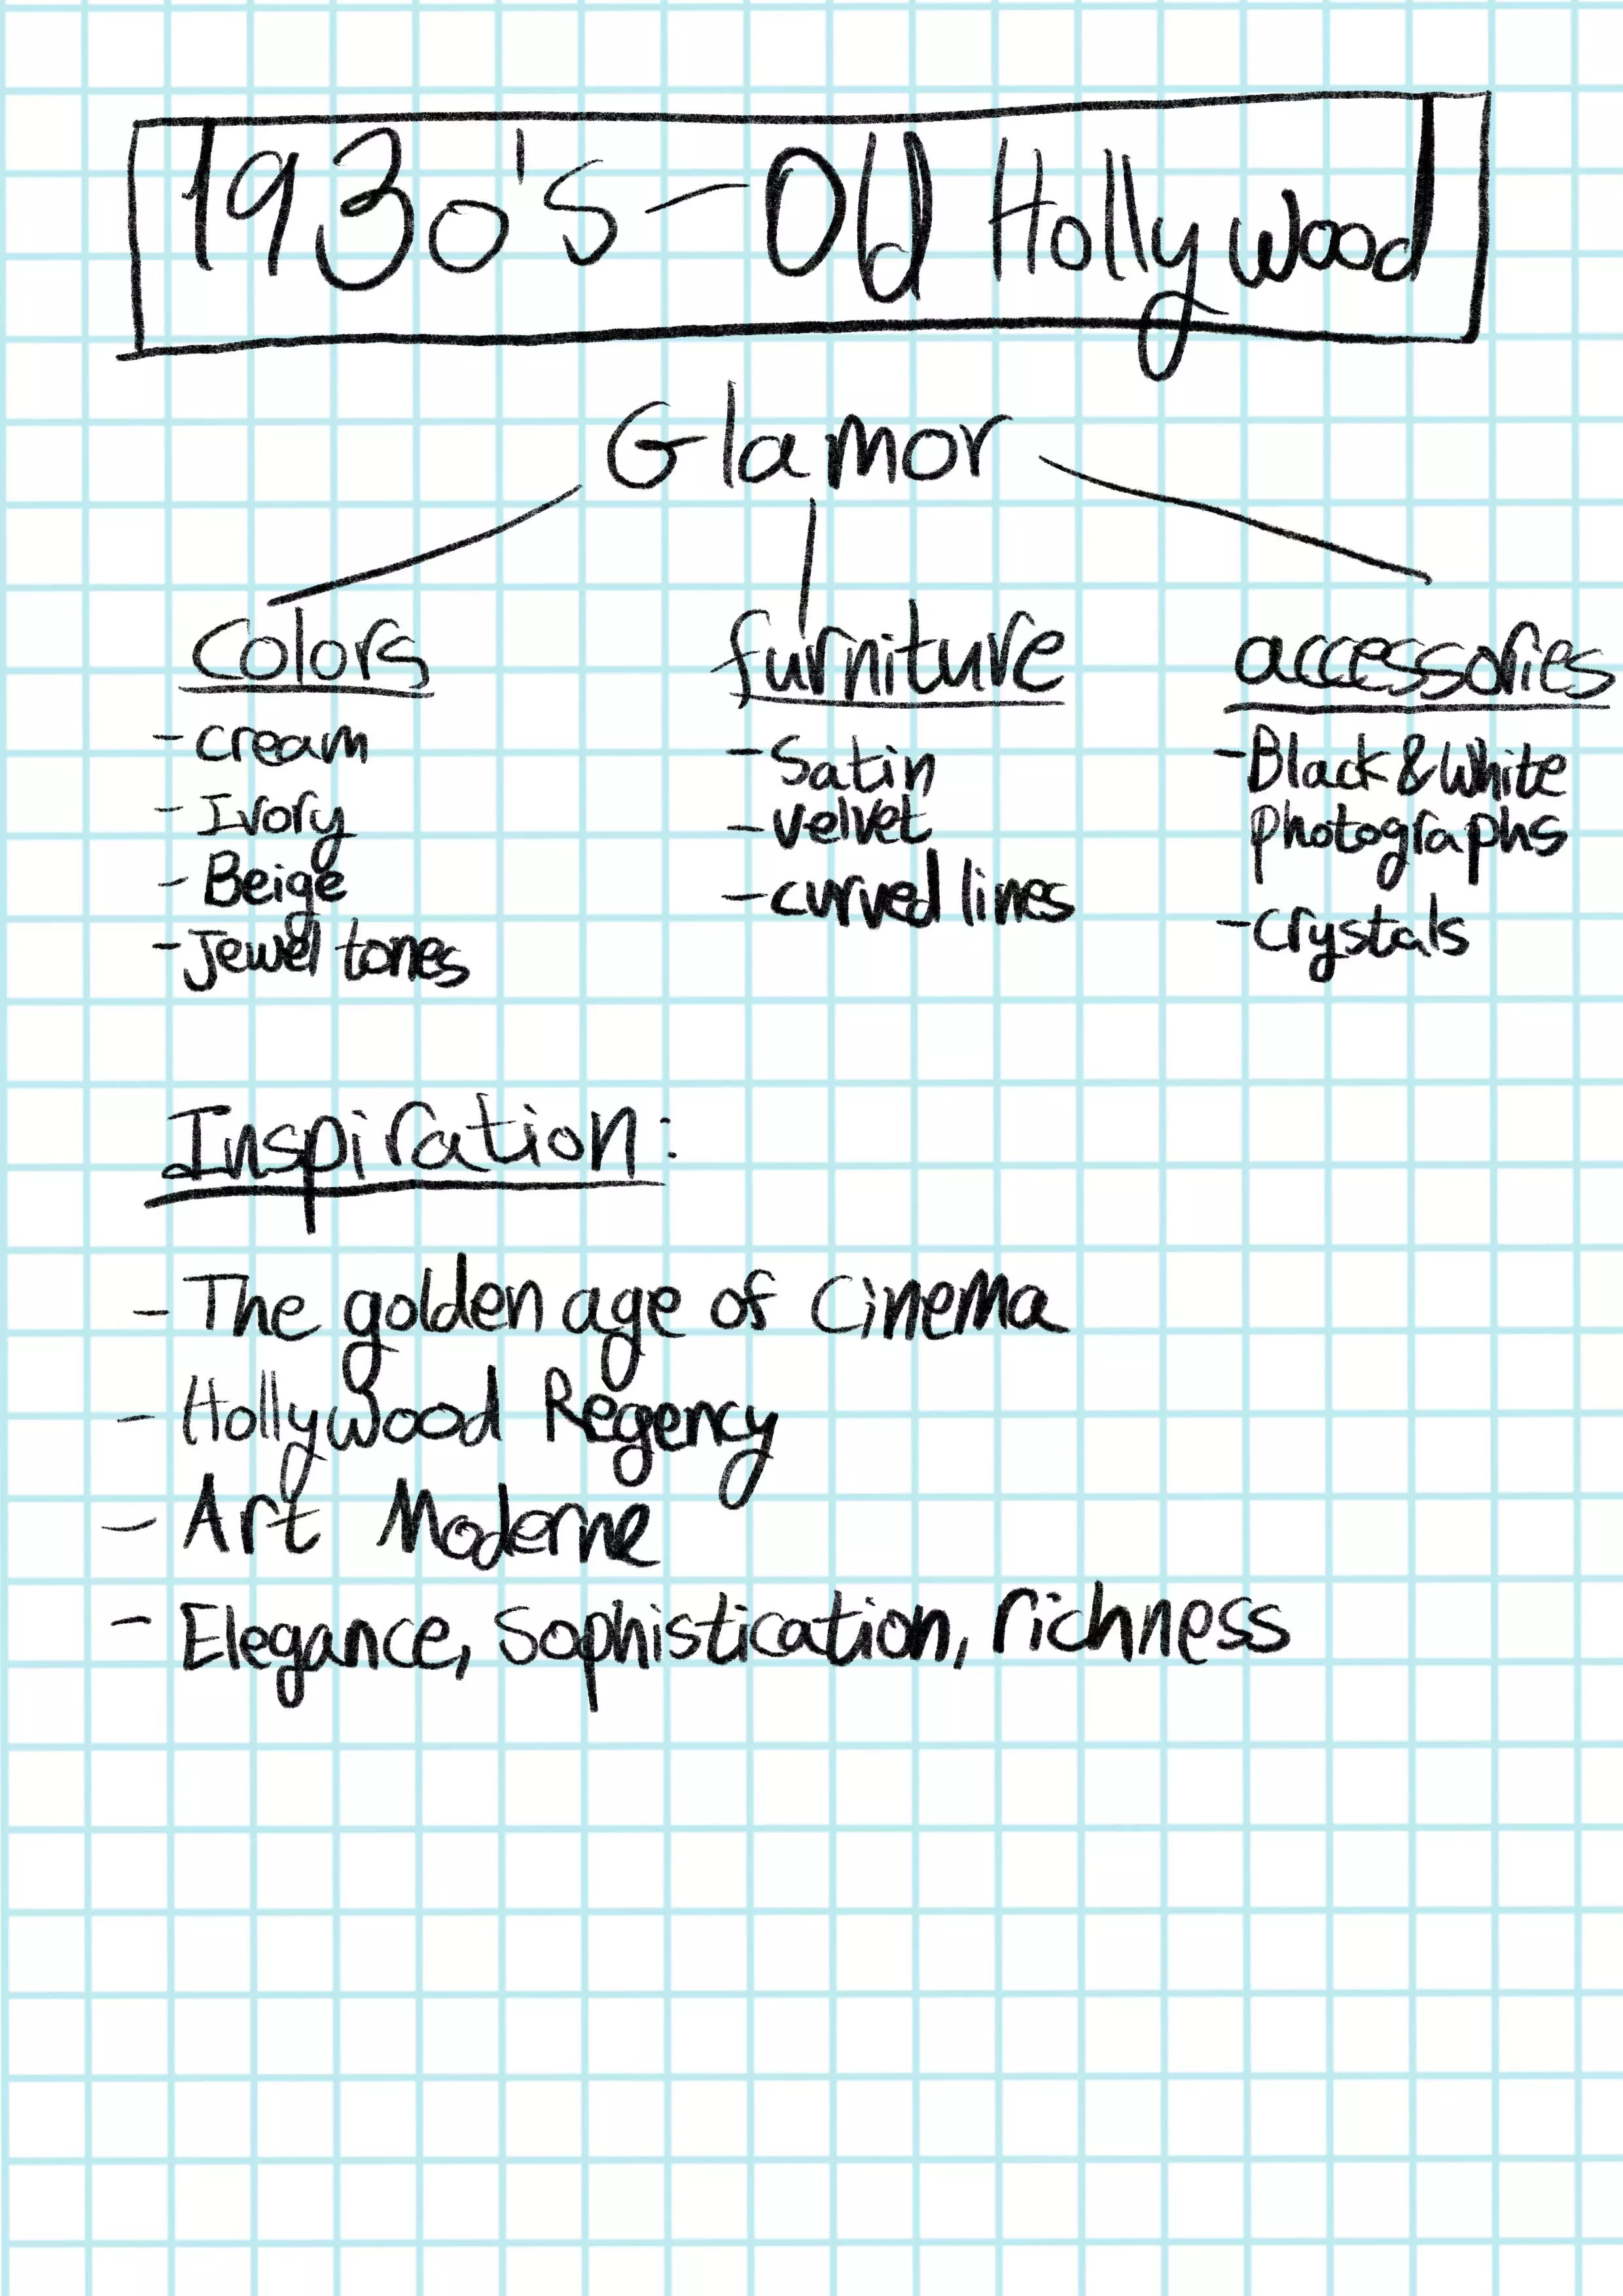 1930's - Old Hollywood
Glamor
Colors
- cream
- Ivory
- Beige
- Jewel tones
furniture
- Satin
- velvet
- curved lines
accessories
- Black & White
photographs
- Crystals
Inspiration:
- The golden age of Cinema
- Hollywood Regency
- Art Moderne
- Elegance, Sophistication, richness